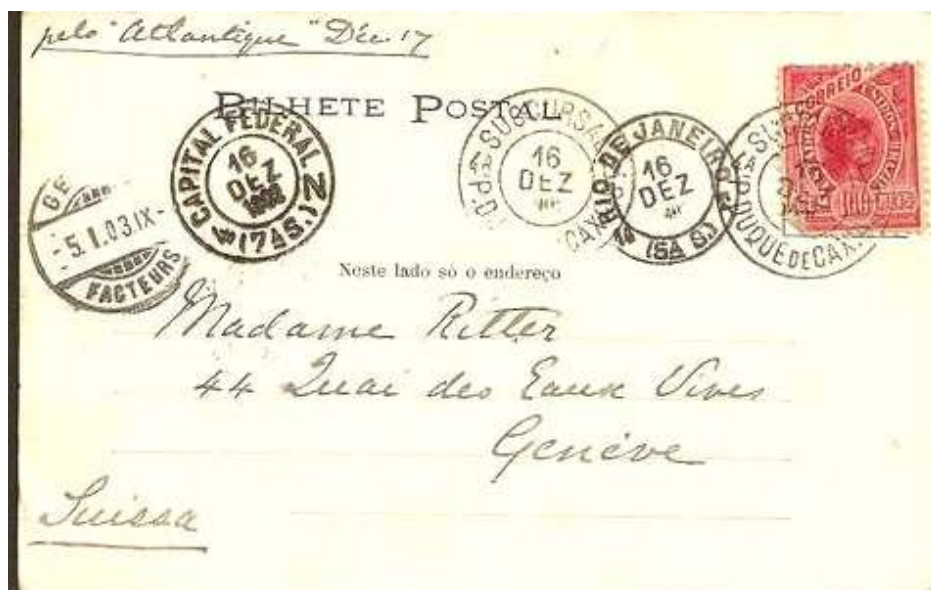 pelo "Atlantique" Déc. 17
BILHETE POSTAL
CAPITAL FEDERAL
16
DEZ
(7A S.)
SUCCURSAL
16
DEZ
RIO DE JANEIRO
16
DEZ
(5A S.)
CORREIO
100 REIS
DUQUE DE CAX
GE
-5.I.03.IX-
FACTEURS
Neste lado só o endereço
Madame Ritter
44 Quai des Eaux Vives
Genève
Suissa